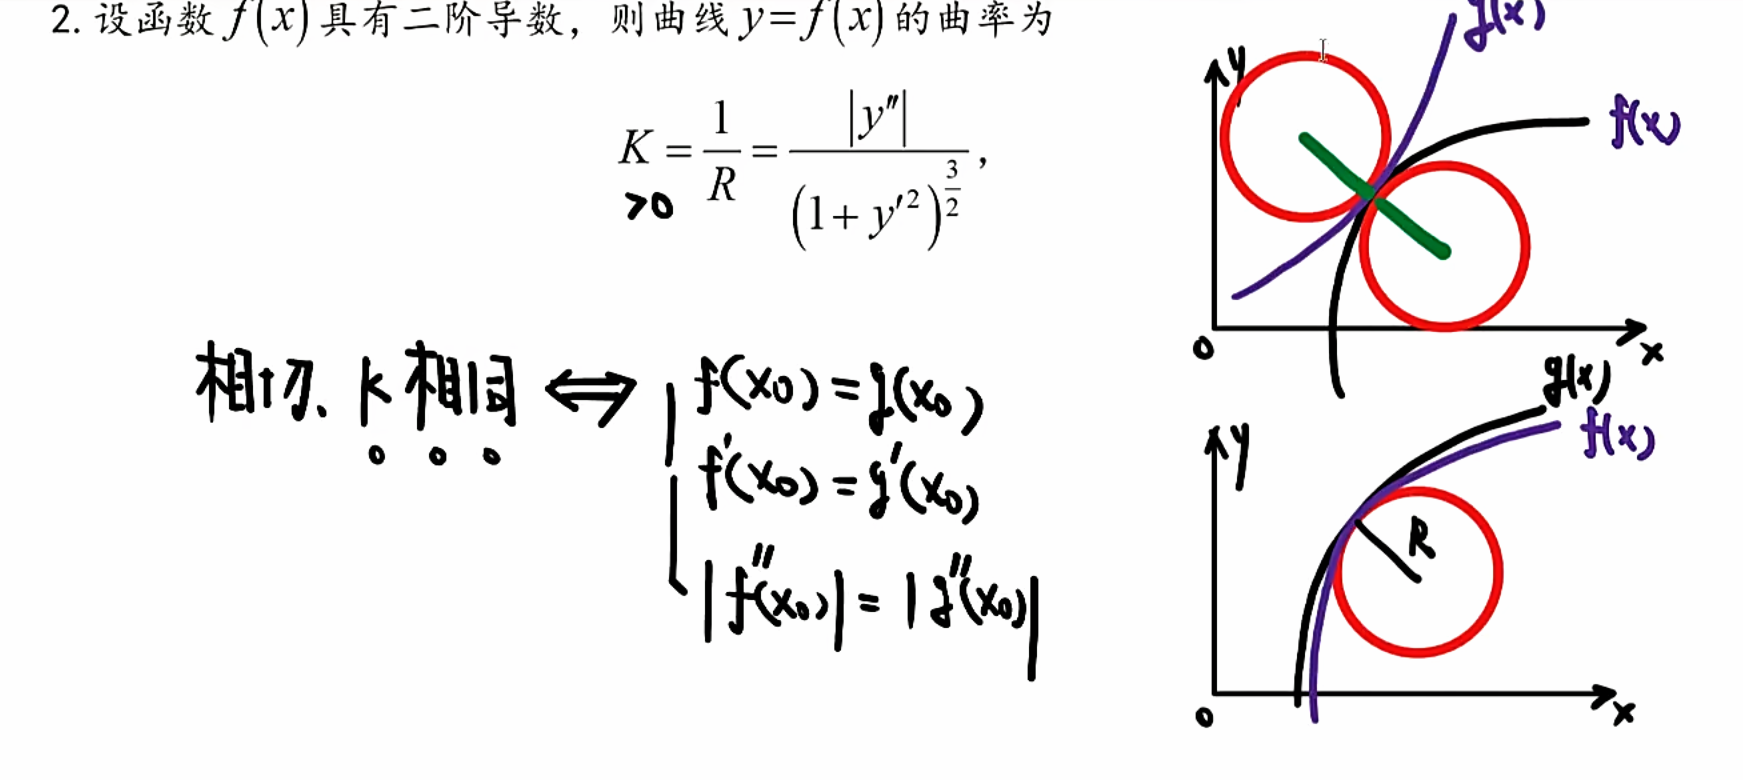 2. 设函数 f(x) 具有二阶导数，则曲线 y=f(x) 的曲率为
K = 1/R = |y″| / (1+y′²)^(3/2) ,
>0
相切、K相同 ⟺ f(x₀)=g(x₀)
f′(x₀)=g′(x₀)
|f″(x₀)|=|g″(x₀)|
g(x)
y
f(x)
0
x
g(x)
f(x)
y
R
0
x